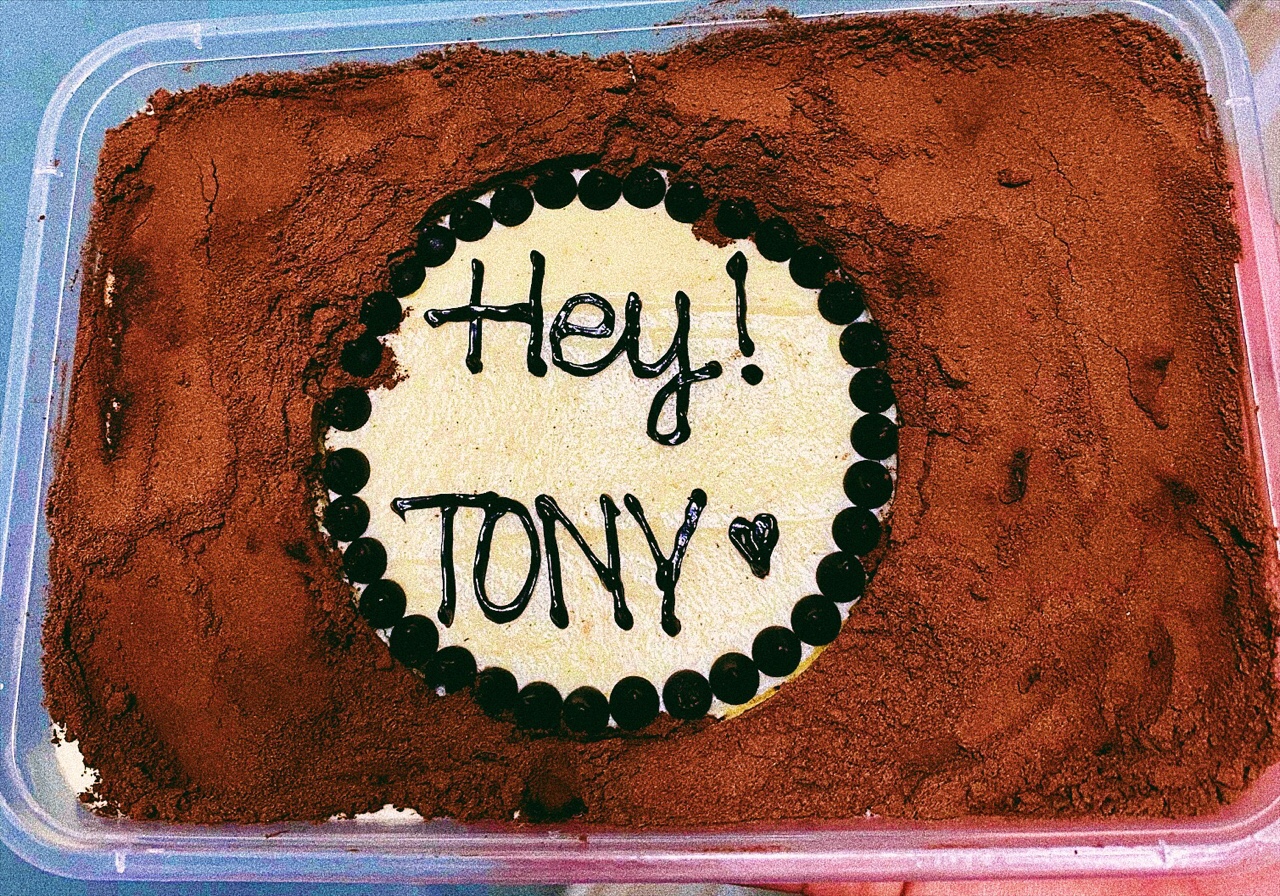 Hey!
TONY ♥